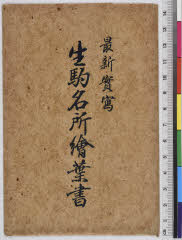 最新實寫
生駒名所繪葉書